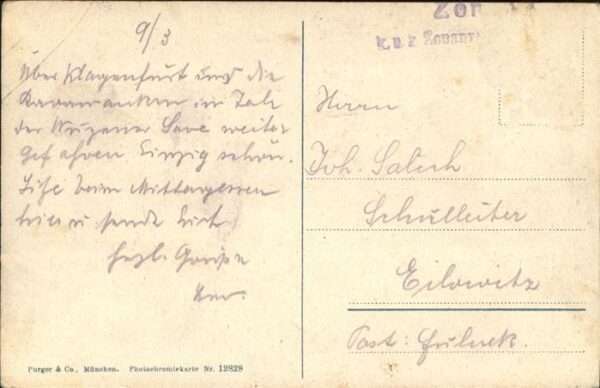 9/3
Über Klagenfurt und die
Karawanken im Tale
der Wurzener Save weiter
gefahren Einzig schön.
beim Mittagessen
hier u sende
herzl. Grüße
Zon
k.u.k Zensur
Herrn
Joh. Salich
Schulleiter
Eilowitz
Post: Fulnek.
Purger & Co., München. Photochromiekarte Nr. 12828